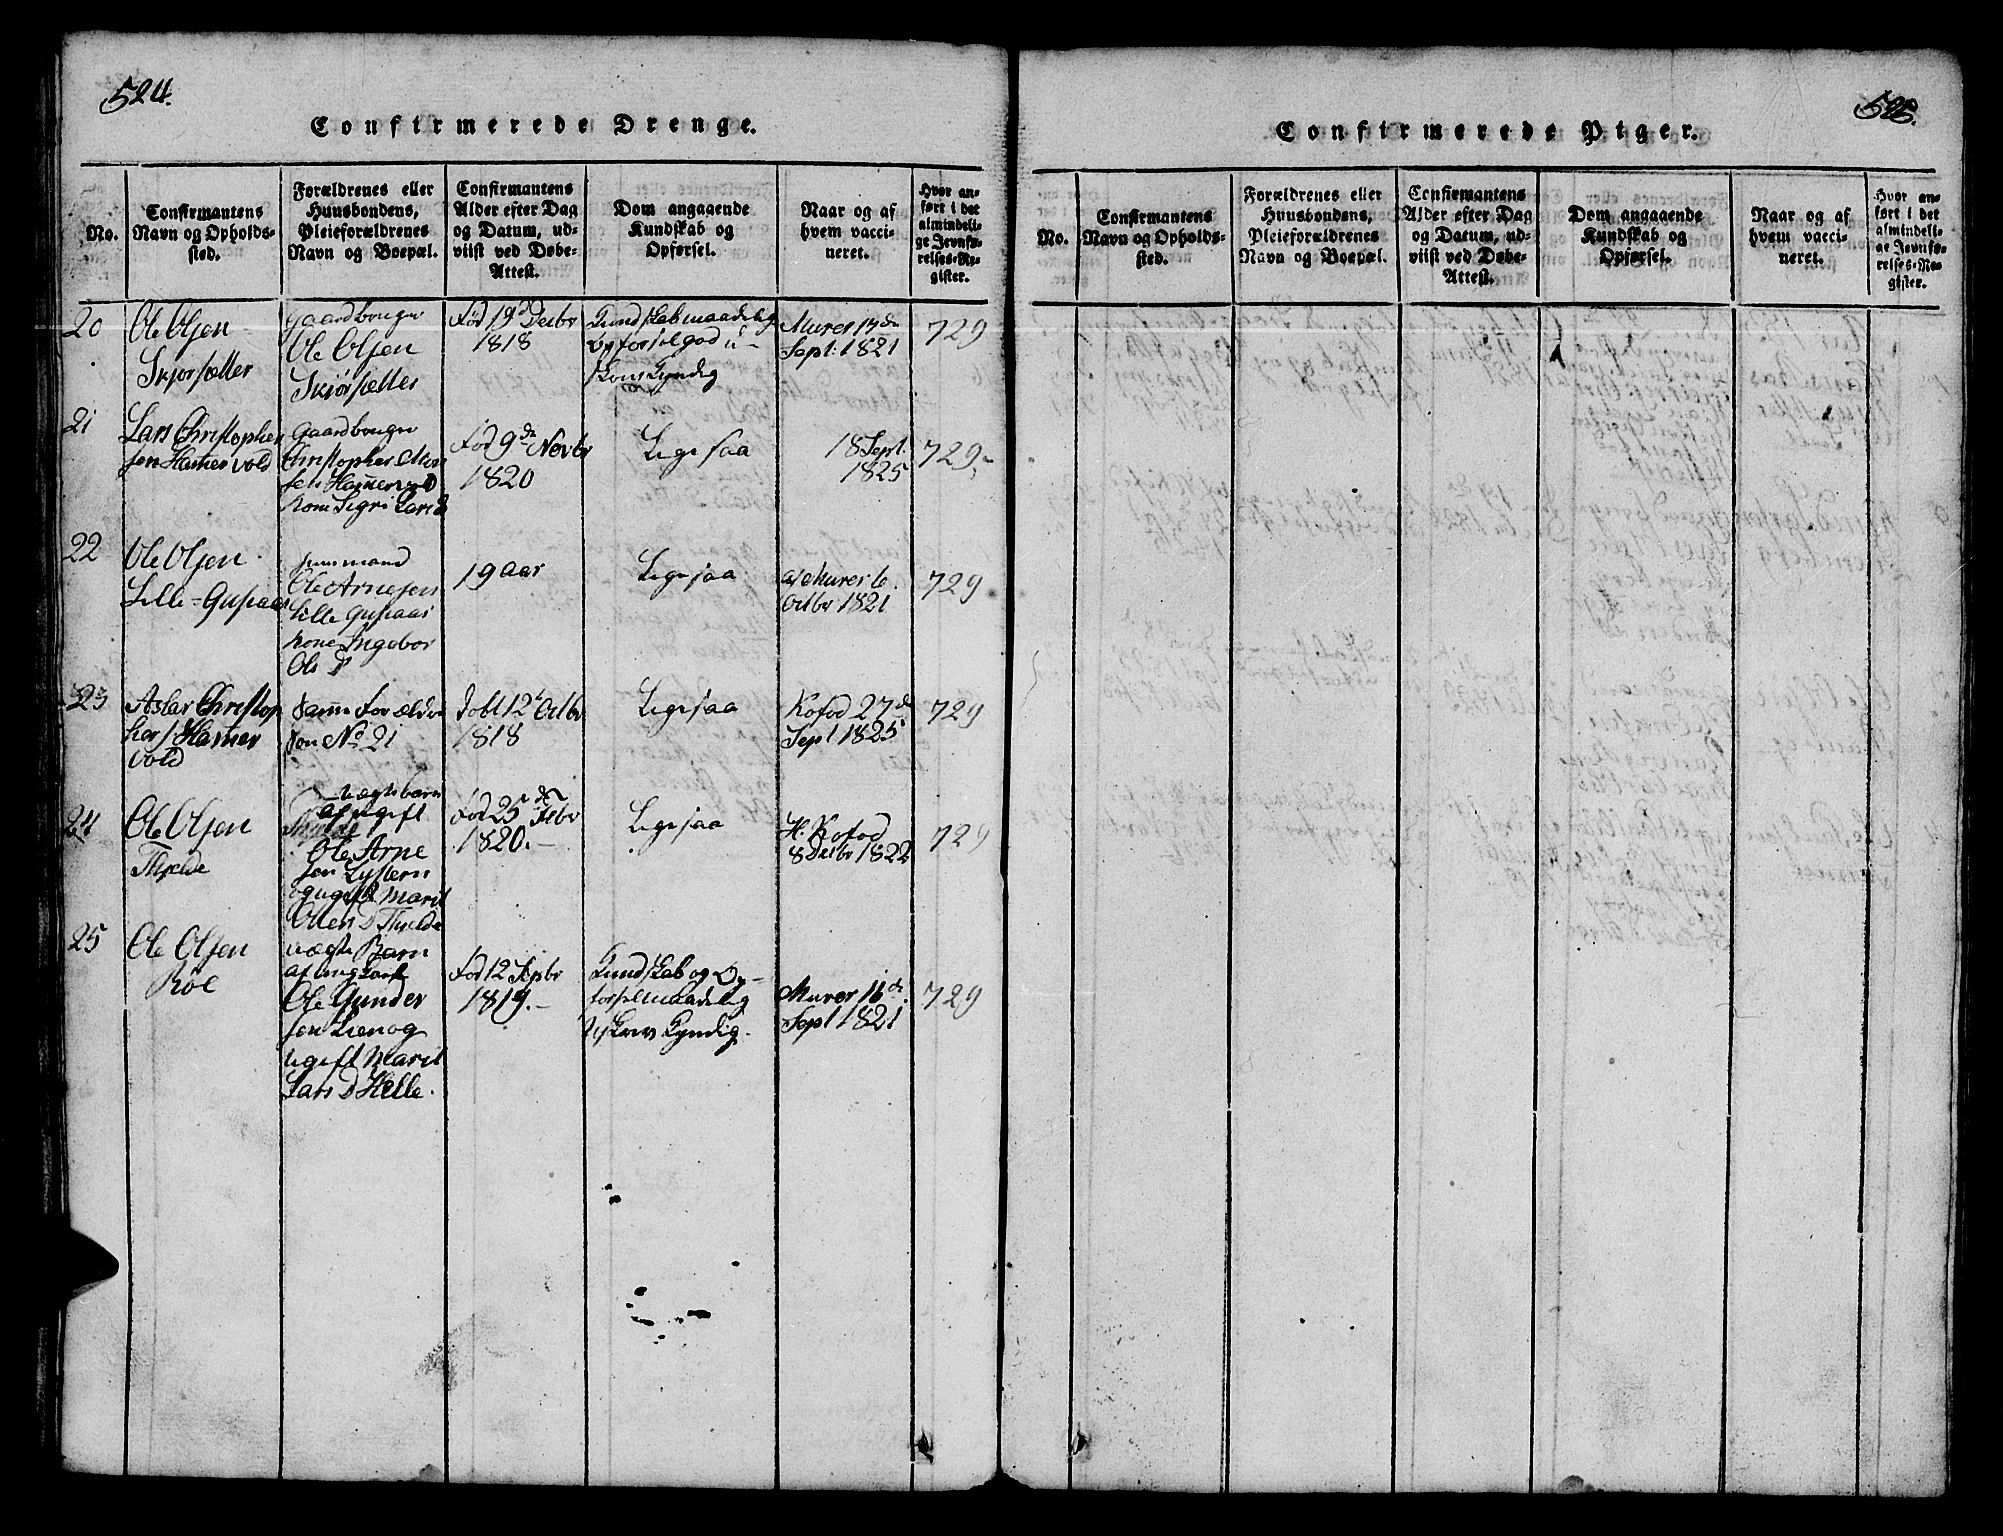 524.
Confirmerede Drenge.
No.
Confirmantens
Navn og Opholds-
sted.
Forældrenes eller
Huusbondens,
Pleieforældrenes
Navn og Boepæl.
Confirmantens
Alder efter Dag
og Datum, ud-
viist ved Døbe-
Attest.
Dom angaaende
Kundskab og
Opførsel.
Naar og af
hvem vacci-
neret.
Hvor an-
ført i det
almindeli-
ge Jevnfø-
relses-Re-
gister.
20
Ole Olsen
Skjorsætter
Gaardbruger
Ole Olsen
Skiørsætter
Fød 19d Decbr
1818
Kundskab maadelig
opførsel god u-
skou Kyndig
Murer 17de
Sept: 1821
729
21
Lars Christopher
sen Hamervold
Gaardbruger
Christopher
sen Hamervold
Kone Sigri Lars D
Fød 9de Novbr
1820
Ligesaa
18 Sept.
1825
729
22
Ole Olsen
Lille-Gusiaas
huusmand
Ole Arnesen
Lille Gusiaas
Kone Ingebor
Ols D
19 aar
Ligesaa
af Murer 6
Octbr 1821
729
23
Aslar Christop
hers Hamer
vold
Samme Forældre
som No 21
Døbt 12t Octbr
1818
Ligesaa
Kofod 27de
Sept 1825
729
24
Ole Olsen
Thjelde
uægte barn
af ugift
Ole Arne
sen Lystern
og ugift Marit
Olsen D Thjelde
Fød 25de Febr
1820.-
Ligesaa
H. Kofod
8 Decbr 1822
729
25
Ole Olsen
Röe
uægte Barn
af ungkarl
Ole Gunder
sen Lien og
ugift Marit
Lars D Helle.
Fød 12 Sepbr
1819.-
Kundskab og Op-
førsel maadelig
uskou Kyndig.
Murer 16de
Sept 1821
729
525.
Confirmerede Piger.
No.
Confirmantens
Navn og Opholds-
sted.
Forældrenes eller
Huusbondens,
Pleieforældrenes
Navn og Boepæl.
Confirmantens
Alder efter Dag
og Datum, ud-
viist ved Døbe-
Attest.
Dom angaaende
Kundskab og
Opførsel.
Naar og af
hvem vacci-
neret.
Hvor an-
ført i det
almindeli-
ge Jevnfø-
relses-Re-
gister.